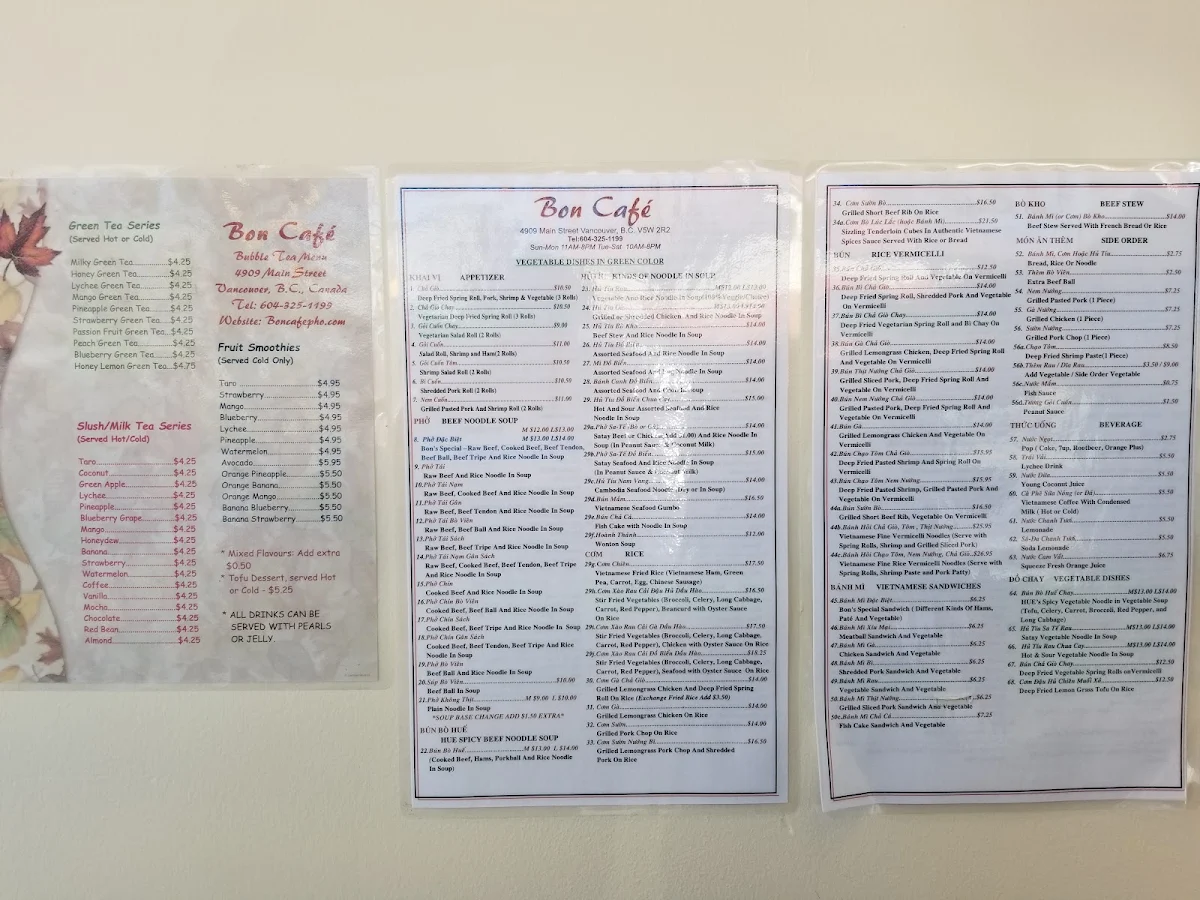 Green Tea Series
(Served Hot or Cold)
Milky Green Tea..........$4.25
Honey Green Tea..........$4.25
Lychee Green Tea..........$4.25
Mango Green Tea..........$4.25
Pineapple Green Tea..........$4.25
Strawberry Green Tea..........$4.25
Passion Fruit Green Tea....$4.25
Peach Green Tea..........$4.25
Blueberry Green Tea......$4.25
Honey Lemon Green Tea...$4.75
Slush/Milk Tea Series
(Served Hot/Cold)
Taro..........$4.25
Coconut..........$4.25
Green Apple..........$4.25
Lychee..........$4.25
Pineapple..........$4.25
Blueberry Grape..........$4.25
Mango..........$4.25
Honeydew..........$4.25
Banana..........$4.25
Strawberry..........$4.25
Watermelon..........$4.25
Coffee..........$4.25
Vanilla..........$4.25
Mocha..........$4.25
Chocolate..........$4.25
Red Bean..........$4.25
Almond..........$4.25
Bon Café
Bubble Tea Menu
4909 Main Street
Vancouver, B.C., Canada
Tel: 604-325-1199
Website: Boncafepho.com
Fruit Smoothies
(Served Cold Only)
Taro..........$4.95
Strawberry..........$4.95
Mango..........$4.95
Blueberry..........$4.95
Lychee..........$4.95
Pineapple..........$4.95
Watermelon..........$4.95
Avocado..........$5.95
Orange Pineapple..........$5.50
Orange Banana..........$5.50
Orange Mango..........$5.50
Banana Blueberry..........$5.50
Banana Strawberry..........$5.50
* Mixed Flavours: Add extra
$0.50
* Tofu Dessert, served Hot
or Cold - $5.25
* ALL DRINKS CAN BE
SERVED WITH PEARLS
OR JELLY.
Bon Café
4909 Main Street Vancouver, B.C. V5W 2R2
Tel:604-325-1199
Sun-Mon 11AM-8PM Tue-Sat 10AM-8PM
VEGETABLE DISHES IN GREEN COLOR
KHAI VỊ APPETIZER
1. Chả Giò..........$10.50
Deep Fried Spring Roll, Pork, Shrimp & Vegetable (3 Rolls)
2. Chả Giò Chay..........$10.50
Vegetarian Deep Fried Spring Roll (3 Rolls)
3. Gỏi Cuốn Chay..........$9.00
Vegetarian Salad Roll (2 Rolls)
4. Gỏi Cuốn..........$11.00
Salad Roll, Shrimp and Ham(2 Rolls)
5. Gỏi Cuốn Tôm..........$10.50
Shrimp Salad Roll (2 Rolls)
6. Bì Cuốn..........$10.50
Shredded Pork Roll (2 Rolls)
7. Nem Cuốn..........$11.00
Grilled Pasted Pork And Shrimp Roll (2 Rolls)
PHỞ BEEF NOODLE SOUP
M $12.00 L$13.00
8. Phở Đặc Biệt M $13.00 L$14.00
Bon's Special - Raw Beef, Cooked Beef, Beef Tendon,
Beef Ball, Beef Tripe And Rice Noodle In Soup
9. Phở Tái
Raw Beef And Rice Noodle In Soup
10.Phở Tái Nạm
Raw Beef, Cooked Beef And Rice Noodle In Soup
11.Phở Tái Gân
Raw Beef, Beef Tendon And Rice Noodle In Soup
12.Phở Tái Bò Viên
Raw Beef, Beef Ball And Rice Noodle In Soup
13.Phở Tái Sách
Raw Beef, Beef Tripe And Rice Noodle In Soup
14.Phở Tái Nạm Gân Sách
Raw Beef, Cooked Beef, Beef Tendon, Beef Tripe
And Rice Noodle In Soup
15.Phở Chín
Cooked Beef And Rice Noodle In Soup
16.Phở Chín Bò Viên
Cooked Beef, Beef Ball And Rice Noodle In Soup
17.Phở Chín Sách
Cooked Beef, Beef Tripe And Rice Noodle In Soup
18.Phở Chín Gân Sách
Cooked Beef, Beef Tendon, Beef Tripe And Rice
Noodle In Soup
19.Phở Bò Viên
Beef Ball And Rice Noodle In Soup
20.Súp Bò Viên..........$10.00
Beef Ball In Soup
21.Phở Không Thịt..........M $9.00 L $10.00
Plain Noodle In Soup
*SOUP BASE CHANGE ADD $1.50 EXTRA*
BÚN BÒ HUẾ
HUE SPICY BEEF NOODLE SOUP
22.Bún Bò Huế..........M $13.00 L $14.00
(Cooked Beef, Hams, Porkball And Rice Noodle
In Soup)
KINDS OF NOODLE IN SOUP
23. Hủ Tíu Rau..........M$13.00 L$14.00
Vegetable And Rice Noodle In Soup
24. Hủ Tíu Gà
Grilled or Shredded Chicken And Rice Noodle In Soup
25. Hủ Tíu Bò Kho..........$14.00
Beef Stew And Rice Noodle In Soup
26. Hủ Tíu Đồ Biển..........$14.00
Assorted Seafood And Rice Noodle In Soup
27. Mì Đồ Biển..........$14.00
Assorted Seafood And Egg Noodle In Soup
28. Bánh Canh Đồ Biển..........$14.00
Assorted Seafood And Noodle In Soup
29. Hủ Tíu Đồ Biển Chua Cay..........$15.00
Hot And Sour Assorted Seafood And Rice
Noodle In Soup
29a.Phở Sa-Tế (Bò or Gà)..........$14.00
Satay Beef or Chicken And Rice Noodle In
Soup (In Peanut Sauce & Coconut Milk)
29b.Phở Sa-Tế Đồ Biển..........$14.00
Satay Seafood And Rice Noodle In Soup
(In Peanut Sauce & Coconut Milk)
29c.Hủ Tíu Nam Vang..........$14.00
Cambodia Seafood Noodle (Dry or In Soup)
29d.Bún Mắm..........$16.50
Vietnamese Seafood Gumbo
29e.Bún Chả Cá..........$14.00
Fish Cake with Noodle in Soup
29f.Hoành Thánh..........$12.00
Wonton Soup
CƠM RICE
29g.Cơm Chiên..........$17.50
Vietnamese Fried Rice (Vietnamese Ham, Green
Pea, Carrot, Egg, Chinese Sausage)
29h.Cơm Xào Rau Cải Đậu Hủ Dầu Hào..........$16.50
Stir Fried Vegetables (Broccoli, Celery, Long Cabbage,
Carrot, Red Pepper), Beancurd with Oyster Sauce
On Rice
29i.Cơm Xào Rau Cải Gà Dầu Hào..........$17.50
Stir Fried Vegetables (Broccoli, Celery, Long Cabbage,
Carrot, Red Pepper), Chicken with Oyster Sauce On Rice
29j.Cơm Xào Rau Cải Đồ Biển Dầu Hào..........$18.25
Stir Fried Vegetables (Broccoli, Celery, Long Cabbage,
Carrot, Red Pepper), Seafood with Oyster Sauce On Rice
30. Cơm Gà Chả Giò..........$14.00
Grilled Lemongrass Chicken And Deep Fried Spring
Roll On Rice (Exchange Fried Rice Add $3.50)
31. Cơm Gà..........$14.00
Grilled Lemongrass Chicken On Rice
32. Cơm Sườn..........$14.00
Grilled Pork Chop On Rice
33. Cơm Sườn Nướng Bì..........$16.50
Grilled Lemongrass Pork Chop And Shredded
Pork On Rice
34. Cơm Sườn Bò..........$16.50
Grilled Short Beef Rib On Rice
34a.Cơm Bò Lúc Lắc (hoặc Bánh Mì)..........$21.50
Sizzling Tenderloin Cubes In Authentic Vietnamese
Spices Sauce Served With Rice or Bread
BÚN RICE VERMICELLI
35.Bún Chả Giò..........$12.50
Deep Fried Spring Roll And Vegetable On Vermicelli
36.Bún Bì Chả Giò..........$14.00
Deep Fried Spring Roll, Shredded Pork And Vegetable
On Vermicelli
37.Bún Bì Chả Giò Chay..........$14.00
Deep Fried Vegetarian Spring Roll and Bi Chay On
Vermicelli
38.Bún Gà Chả Giò..........$14.00
Grilled Lemongrass Chicken, Deep Fried Spring Roll
And Vegetable On Vermicelli
39.Bún Thịt Nướng Chả Giò..........$14.00
Grilled Sliced Pork, Deep Fried Spring Roll And
Vegetable On Vermicelli
40.Bún Nem Nướng Chả Giò..........$14.00
Grilled Pasted Pork, Deep Fried Spring Roll And
Vegetable On Vermicelli
41.Bún Gà..........$14.00
Grilled Lemongrass Chicken And Vegetable On
Vermicelli
42.Bún Chạo Tôm Chả Giò..........$15.95
Deep Fried Pasted Shrimp And Spring Roll On
Vermicelli
43.Bún Chạo Tôm Nem Nướng..........$15.95
Deep Fried Pasted Shrimp, Grilled Pasted Pork And
Vegetable On Vermicelli
44a.Bún Sườn Bò..........$16.50
Grilled Short Beef Rib, Vegetable On Vermicelli
44b.Bánh Hỏi Chả Giò, Tôm , Thịt Nướng..........$25.95
Vietnamese Fine Vermicelli Noodles (Serve with
Spring Rolls, Shrimp and Grilled Sliced Pork)
44c.Bánh Hỏi Chạo Tôm, Nem Nướng, Chả Giò..$26.95
Vietnamese Fine Rice Vermicelli Noodles (Serve with
Spring Rolls, Shrimp Paste and Pork Patty)
BÁNH MÌ VIETNAMESE SANDWICHES
45.Bánh Mì Đặc Biệt..........$6.25
Bon's Special Sandwich ( Different Kinds Of Hams,
Paté And Vegetable)
46.Bánh Mì Xíu Mại..........$6.25
Meatball Sandwich And Vegetable
47.Bánh Mì Gà..........$6.25
Chicken Sandwich And Vegetable
48.Bánh Mì Bì..........$6.25
Shredded Pork Sandwich And Vegetable
49.Bánh Mì Rau..........$6.25
Vegetable Sandwich And Vegetable
50.Bánh Mì Thịt Nướng..........$6.25
Grilled Sliced Pork Sandwich And Vegetable
50c.Bánh Mì Chả Cá..........$7.25
Fish Cake Sandwich And Vegetable
BÒ KHO BEEF STEW
51. Bánh Mì (or Cơm) Bò Kho..........$14.00
Beef Stew Served With French Bread Or Rice
MÓN ĂN THÊM SIDE ORDER
52. Bánh Mì, Cơm Hoặc Hủ Tíu..........$2.75
Bread, Rice Or Noodle
53. Thêm Bò Viên..........$2.50
Extra Beef Ball
54. Nem Nướng..........$7.25
Grilled Pasted Pork (1 Piece)
55. Gà Nướng..........$7.25
Grilled Chicken (1 Piece)
56. Sườn Nướng..........$7.25
Grilled Pork Chop (1 Piece)
56a.Chạo Tôm..........$8.50
Deep Fried Shrimp Paste(1 Piece)
56b.Thêm Rau / Dĩa Rau..........$3.50 / $9.00
Add Vegetable / Side Order Vegetable
56c.Nước Mắm..........$0.75
Fish Sauce
56d.Tương Gỏi Cuốn..........$1.50
Peanut Sauce
THỨC UỐNG BEVERAGE
57. Nước Ngọt..........$2.75
Pop ( Coke, 7up, Rootbeer, Orange Plus)
58. Trái Vải..........$5.50
Lychee Drink
59. Nước Dừa..........$5.50
Young Coconut Juice
60. Cà Phê Sữa Nóng (or Đá)..........$5.50
Vietnamese Coffee With Condensed
Milk ( Hot or Cold)
61. Nước Chanh Tươi..........$5.50
Lemonade
62. Sô-Đa Chanh Tươi..........$5.50
Soda Lemonade
63. Nước Cam Vắt..........$6.75
Squeeze Fresh Orange Juice
ĐỒ CHAY VEGETABLE DISHES
64. Bún Bò Huế Chay..........M$13.00 L$14.00
HUE's Spicy Vegetable Noodle in Vegetable Soup
(Tofu, Celery, Carrot, Broccoli, Red Pepper, and
Long Cabbage)
65. Hủ Tíu Sa Tế Rau..........M$13.00 L$14.00
Satay Vegetable Noodle In Soup
66. Hủ Tíu Rau Chua Cay..........M$13.00 L$14.00
Hot & Sour Vegetable Noodle In Soup
67. Bún Chả Giò Chay..........$12.50
Deep Fried Vegetable Spring Rolls on Vermicelli
68. Cơm Đậu Hủ Chiên Muối Xả..........$12.50
Deep Fried Lemon Grass Tofu On Rice